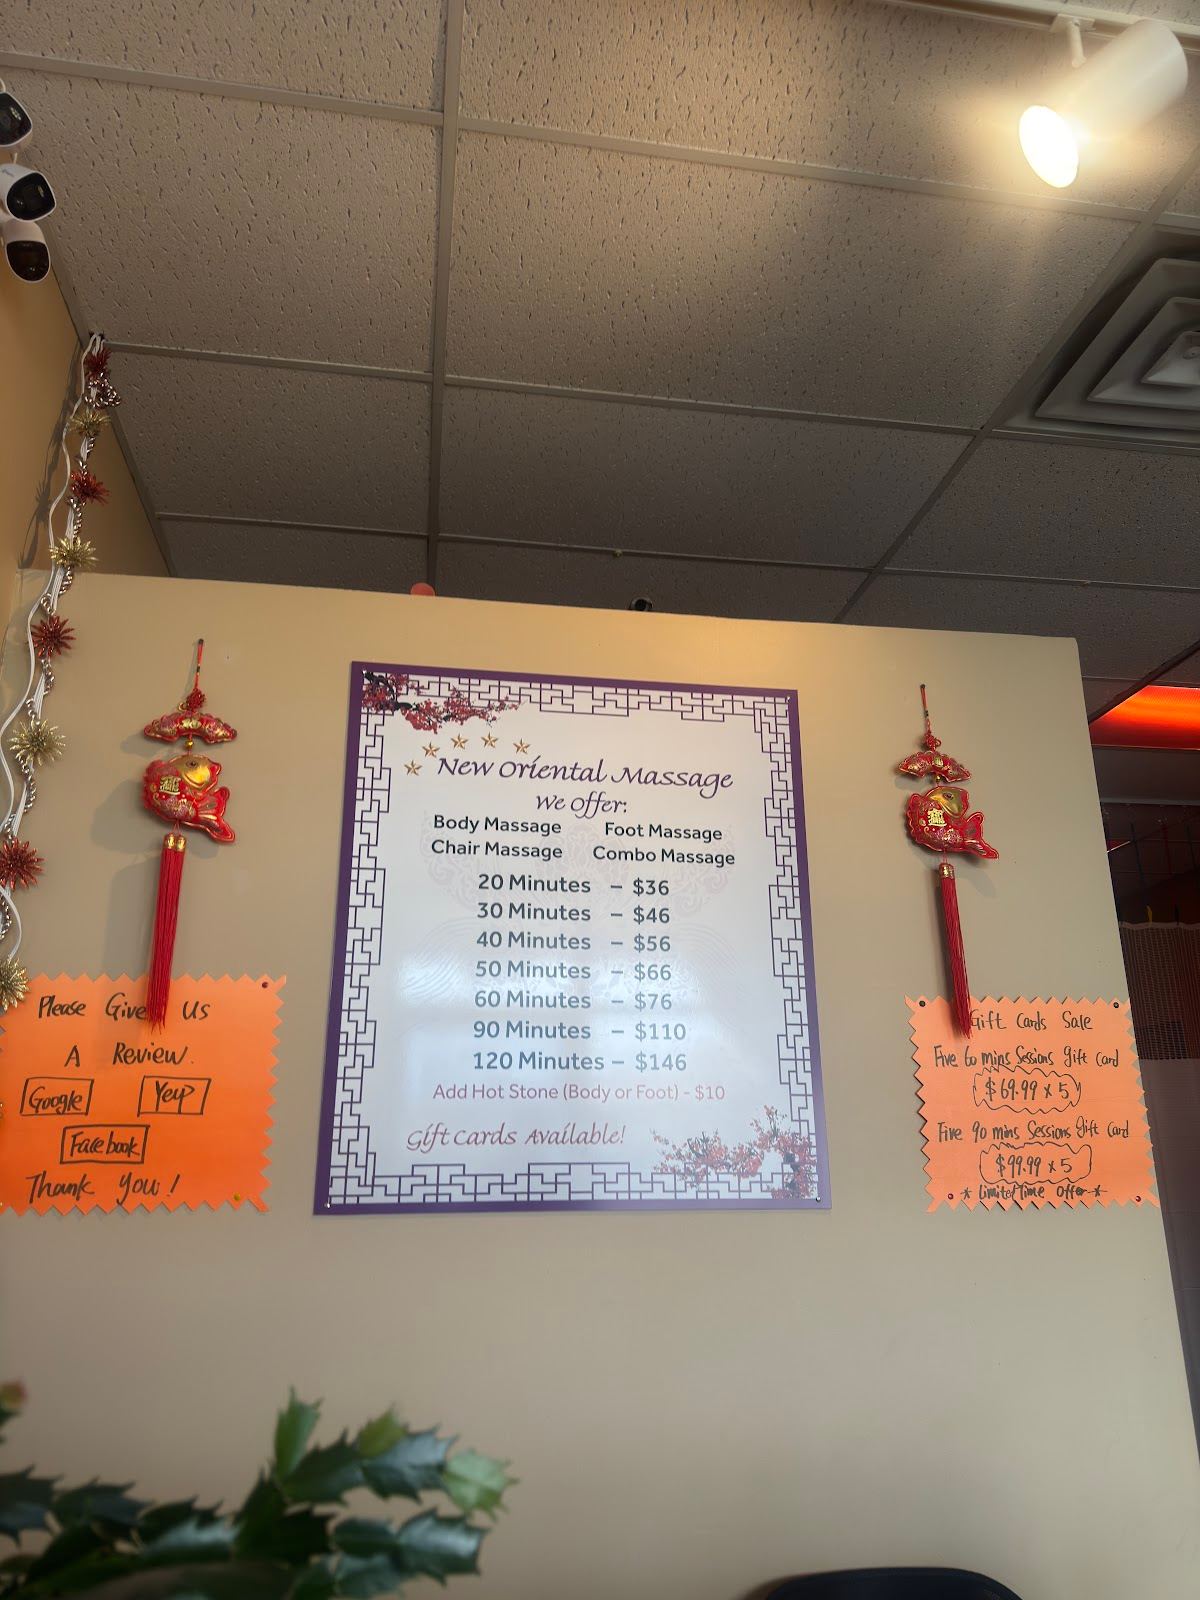 New Oriental Massage
We Offer:
Body Massage Foot Massage
Chair Massage Combo Massage
20 Minutes – $36
30 Minutes – $46
40 Minutes – $56
50 Minutes – $66
60 Minutes – $76
90 Minutes – $110
120 Minutes – $146
Add Hot Stone (Body or Foot) - $10
Gift Cards Available!
Please Give Us
A Review.
Google Yelp
Facebook
Thank You!
Gift Cards Sale
Five 60 mins Sessions Gift Card
$69.99 x 5
Five 90 mins Sessions Gift Card
$99.99 x 5
* Limited Time Offer *